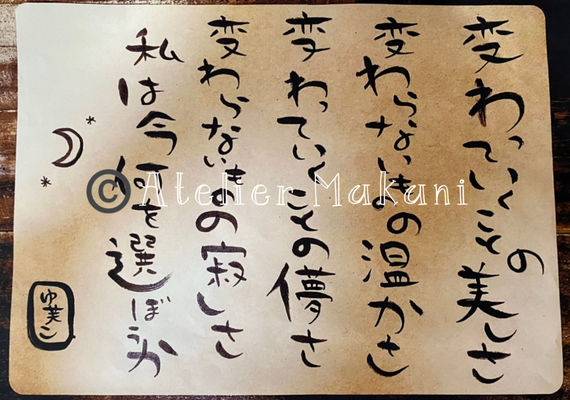 変わっていくことの美しさ
変わらないものの温かさ
変わっていくことの儚さ
変わらないものの寂しさ
私は今何を選ぼうか
ゆ美こ
© Atelier Makani